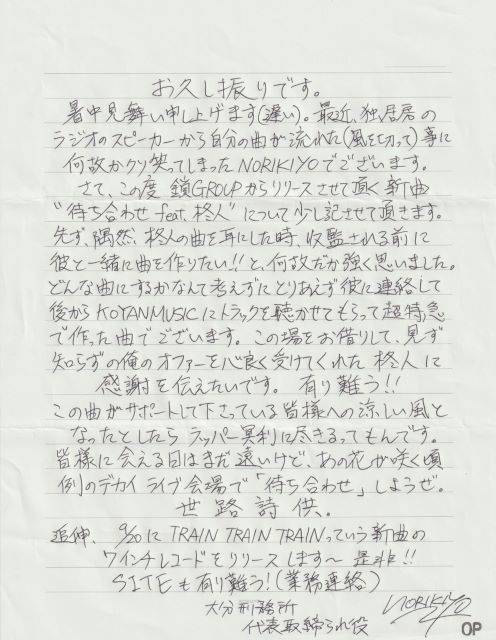 お久し振りです。
暑中見舞い申し上げます(遅い)。最近、独居房の
ラジオのスピーカーから自分の曲が流れた(風を切って)事に
何故かクリ笑ってしまったNORIKIYOでございます。
さて、この度 鎖GROUPからリリースさせて頂く新曲
"待ち合わせ feat. 柊人"について少し記させて頂きます。
先ず、偶然、柊人の曲を耳にした時、収監される前に
彼と一緒に曲を作りたい!!と、何故だか強く思いました。
どんな曲にするかなんて考えずにとりあえず彼に連絡して
後からKOYANMUSICにトラックを聴かせてもらって超特急
で作った曲でございます。この場をお借りして、見ず
知らずの俺のオファーを心良く受けてくれた 柊人に
感謝を伝えたいです。有り難う!!
この曲がサポートして下さっている皆様への涼しい風と
なったとしたら ラッパー冥利に尽きるってもんです。
皆様に会える日はまだ遠いけど、あの花が咲く頃
例のデカイ ライブ会場で「待ち合わせ」しようぜ。
世路詩供.
追伸、9/20に TRAIN TRAIN TRAINっていう新曲の
7インチレコードをリリースします〜 是非!!
SITEも有り難う!(業務連絡)
大分刑務所
代表取締られ役 NORIKIYO
OP